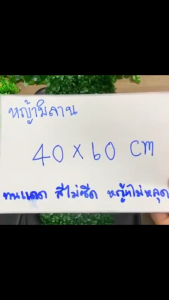 หญ้ามิลาน
40 x 60 cm
ทนแดด สีไม่ซีด หญ้าไม่หลุด